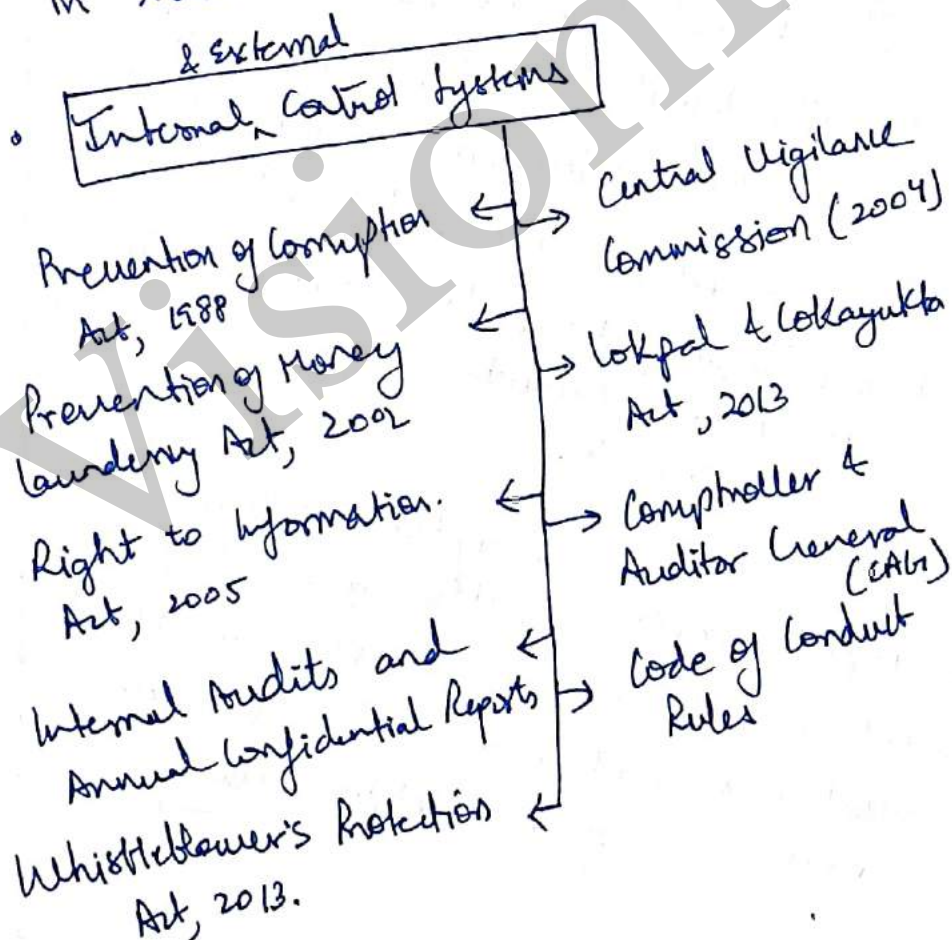 & External
• Internal ^ Control Systems
Prevention of Corruption
Act, 1988
Prevention of Money
Laundering Act, 2002
Right to Information.
Act, 2005
Internal Audits and
Annual Confidential Reports
Whistleblower's Protection
Act, 2013.
Central Vigilance
Commission (2004)
Lokpal & Lokayukta
Act, 2013
Comptroller &
Auditor General
(CAG)
Code of Conduct
Rules